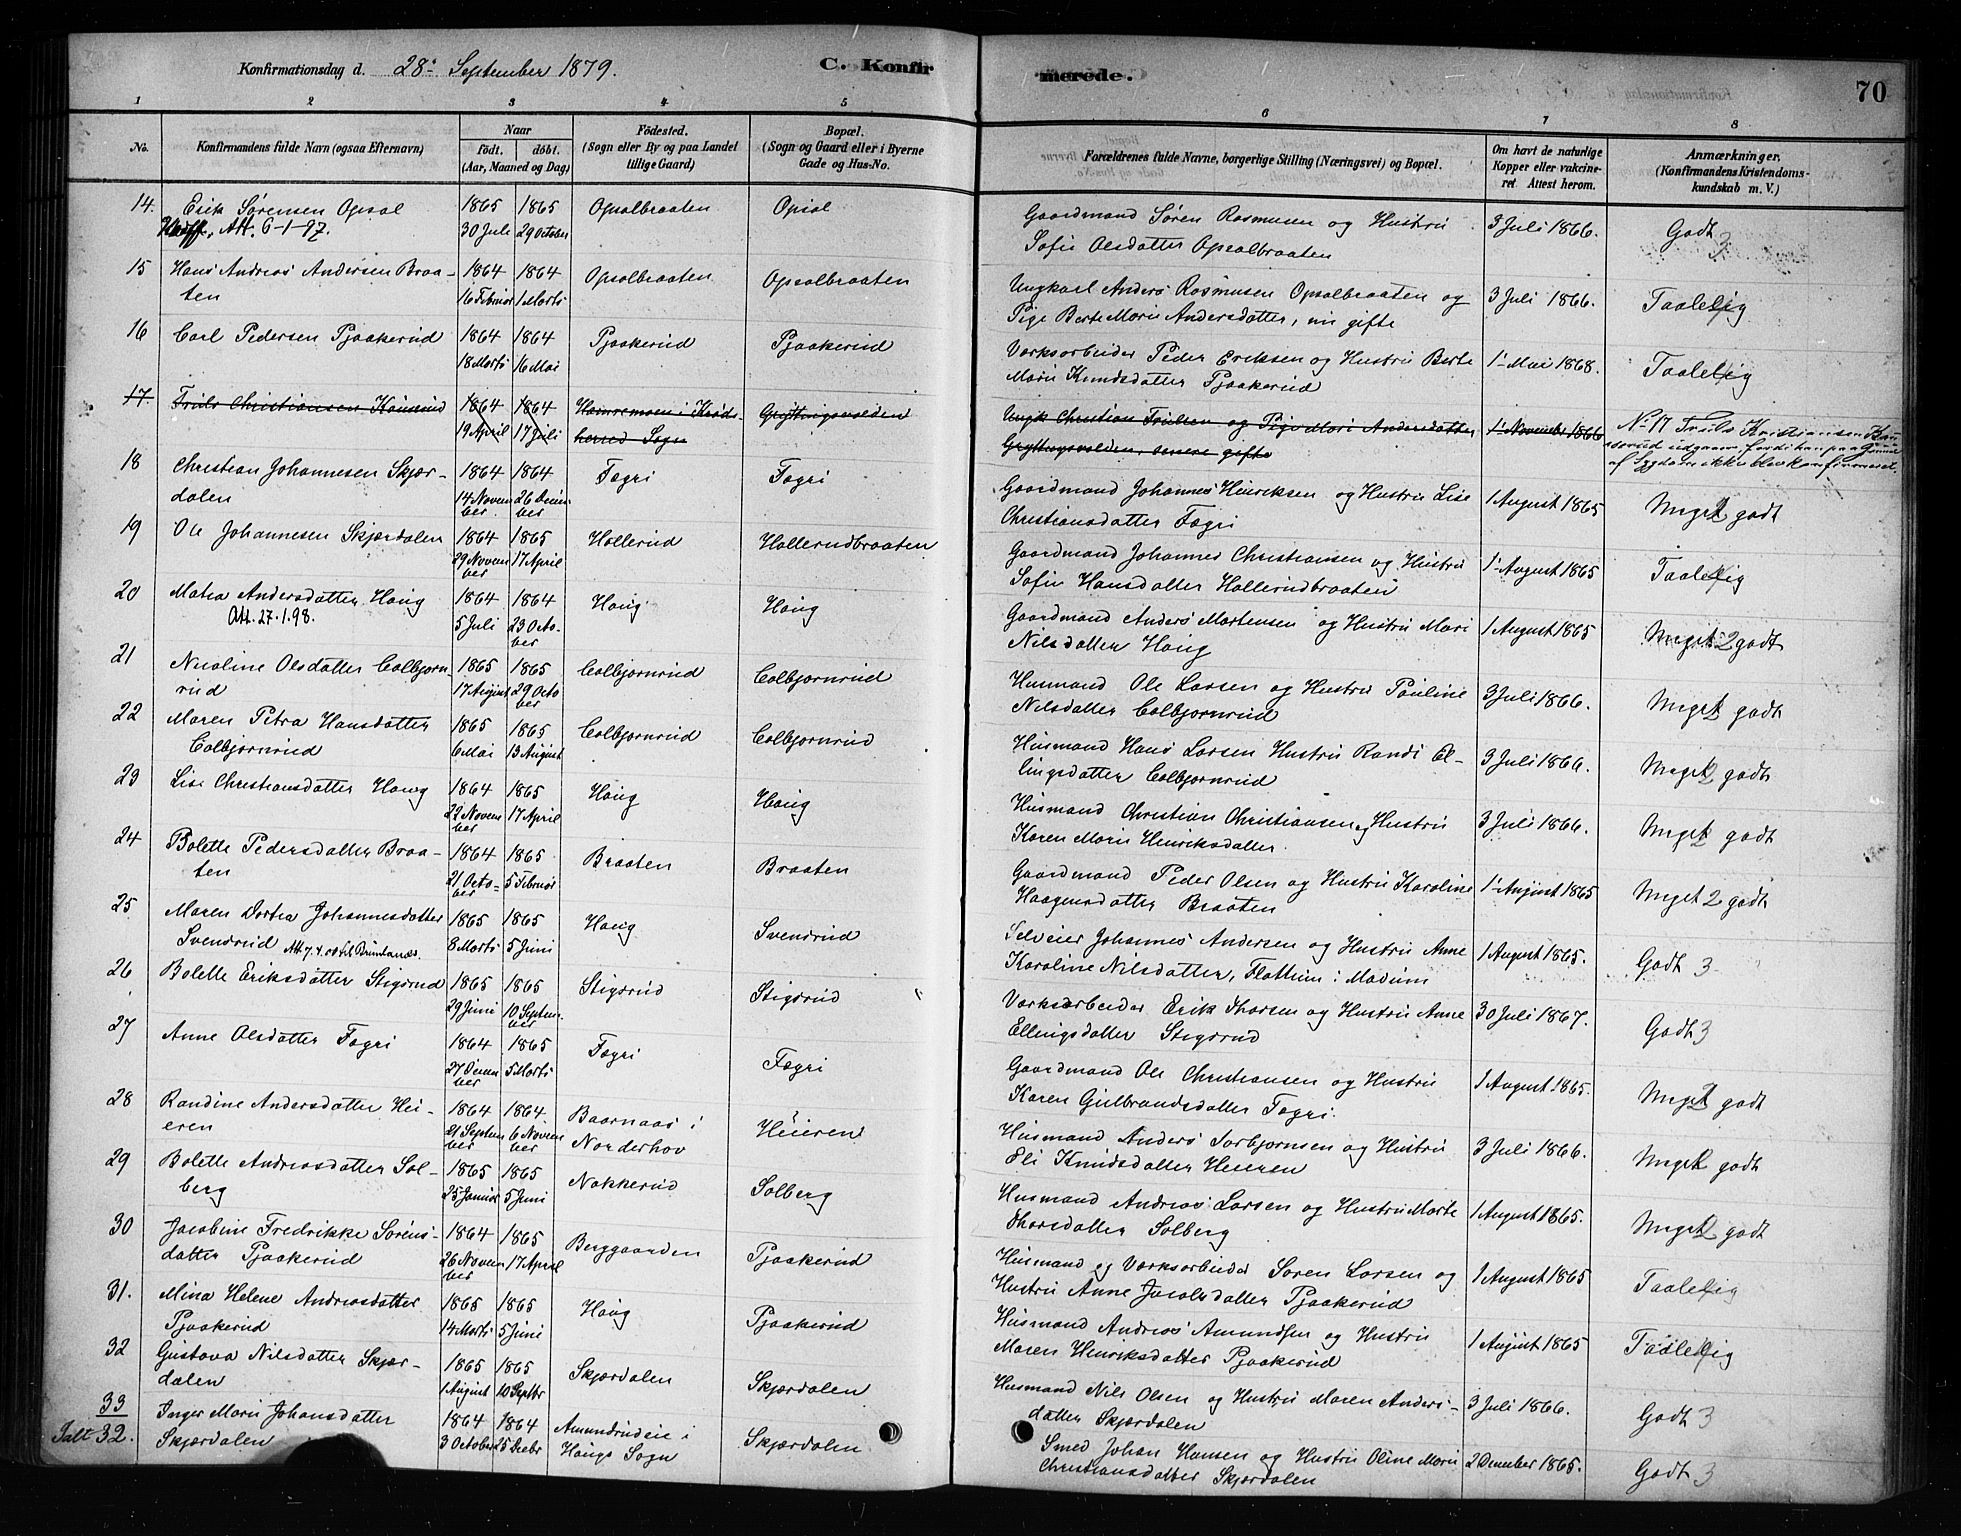 Konfirmationsdag d. 28de September 1879. C. Konfirmerede. 70
1 2 3 4 5 6 7 8
No. Konfirmandens fulde Navn (ogsaa Efternavn) Naar født. døbt. (Aar, Maaned og Dag) Fødested. (Sogn eller By og paa Landet tillige Gaard) Bopæl. (Sogn og Gaard eller i Byerne Gade og Hus-No. Forældrenes fulde Navne, borgerlige Stilling (Næringsvei) og Bopæl. Om havt de naturlige Kopper eller vakcineret Attest herom. Anmærkninger, (Konfirmandens Kristendomskundskab m. V.)
14. Erik Sørensen Opsal Att. 6-1-97. 1865 30 Juli 1865 29 October Opsalbraaten Opsal Gaardmand Søren Rasmusen og Hustru Sofie Olsdatter Opsalbraaten 3 Juli 1866. Godt 3
15 Hans Andreas Andersen Braaten 1864 16 Februar 1864 1 Marts Opsalbraaten Opsalbraaten Ungkarl Anders Rasmusen Opsalbraaten og Pige Berte Marie Andersdatter, nu gifte 3 Juli 1866. Taalelig
16 Carl Pedersen Pjaakerud 1864 18 Marts 1864 16 Mai Pjaakerud Pjaakerud Værksarbeider Peder Eriksen og Hustru Berte Marie Knudsdatter Pjaakerud 1 Mai 1868. Taalelig
17. Truls Christiansen 1864 19 April 1864 17 Juli i Krødsherred Sogn Grøttingsvolden Ungk Christian Trulsen og Pige Mari Andersdatter Grøttingsvolden, senere gifte 1 November 1866 No 17 Truls Kristiansen udgaar fordi han paa Grund af Sygdom ikke blev konfirmeret
18 Christian Johannesen Skjærdalen 1864 14 November 1864 26 December Fægri Fægri Gaardmand Johannes Henriksen og Hustru Lise Christiansdatter Fægri 1 August 1865 Meget 2 godt
19 Ole Johannesen Skjærdalen 1864 29 November 1865 17 April Hollerud Hollerudbraaten Gaardmand Johannes Christiansen og Hustru Sofie Hansdatter Hollerudbraaten 1 August 1865 Taalelig
20 Matea Andersdatter Haug Att. 27.1.98. 1864 5 Juli 1864 23 October Haug Haug Gaardmand Anders Mortensen og Hustru Mari Nilsdatter Haug 1 August 1865 Meget 2 godt
21 Nicoline Olsdatter Colbjørnrud 1865 17 August 1865 29 October Colbjørnrud Colbjørnrud Husmand Ole Larsen og Hustru Pauline Nilsdatter Colbjørnrud 3 Juli 1866. Meget 2 godt
22 Maren Petra Hansdatter Colbjørnrud 1865 6 Mai 1865 13 August Colbjørnrud Colbjørnrud Husmand Hans Larsen Hustru Randi Ellingsdatter Colbjørnrud 3 Juli 1866. Meget 2 godt
23 Lise Christiansdatter Haug 1864 22 November 1865 17 April Haug Haug Husmand Christian Christiansen og Hustru Karen Marie Henriksdatter 3 Juli 1866. Meget 2 godt
24 Bolette Pedersdatter Braaten 1864 21 October 1865 5 Februar Braaten Braaten Gaardmand Peder Olsen og Hustru Karoline Haagensdatter Braaten 1 August 1865 Meget 2 godt
25 Maren Dortea Johannesdatter Svendsrud Att 7.4.00 til Brunlanæs. 1865 8 Marts 1865 5 Juni Haug Svendrud Selveier Johannes Andersen og Hustru Anne Karoline Nilsdatter, Flattum i Modum 1 August 1865. Godt 3
26 Bolette Eriksdatter Stigsrud 1865 29 Juni 1865 10 September Stigsrud Stigsrud Værksarbeider Erik Thorsen og Hustru Anne Ellingsdatter Stigsrud 30 Juli 1867. Godt 3
27 Anne Olsdatter Fægri 1864 27 December 1865 5 Marts Fægri Fægri Gaardmand Ole Christiansen og Hustru Karen Gulbrandsdatter Fægri. 1 August 1865. Meget 2 godt
28 Randine Andersdatter Heieren 1864 21 September 1864 6 November Baarnaas i Norderhov Heieren Husmand Anders Torbjørnsen og Hustru Eli Knudsdatter Heieren 3 Juli 1866. Meget 2 godt
29 Bolette Andreasdatter Solberg 1865 25 Januar 1865 5 Juni Nakkerud Solberg Husmand Andreas Larsen og Hustru Marte Thorsdatter Solberg 1 August 1865. Meget 2 godt
30 Jacobine Fredrikke Sørensdatter Pjaakerud 1864 26 November 1865 17 April Berggaarden Pjaakerud Husmand og Værksarbeider Søren Larsen og Hustru Anne Jacobsdatter Pjaakerud 1 August 1865 Taalelig
31. Mina Helene Andreasdatter Pjaakerud 1865 14 Marts 1865 5 Juni Haug Pjaakerud Husmand Andreas Amundsen og Hustru Maren Henriksdatter Pjaakerud 1 August 1865 Taalelig
32 Gustava Nilsdatter Skjærdalen 1865 1 August 1865 10 Septbr Skjærdalen Skjærdalen Husmand Nils Olsen og Hustru Maren Andersdatter Skjærdalen 3 Juli 1866. Godt 3
33 Inger Marie Johansdatter Skjærdalen 1864 3 October 1864 25 Decbr Amundrudeie i Haugs Sogn Skjærdalen Smed Johan Hansen og Hustru Oline Marie Christiansdatter Skjærdalen 2 December 1865. Godt 3
Ialt 32.